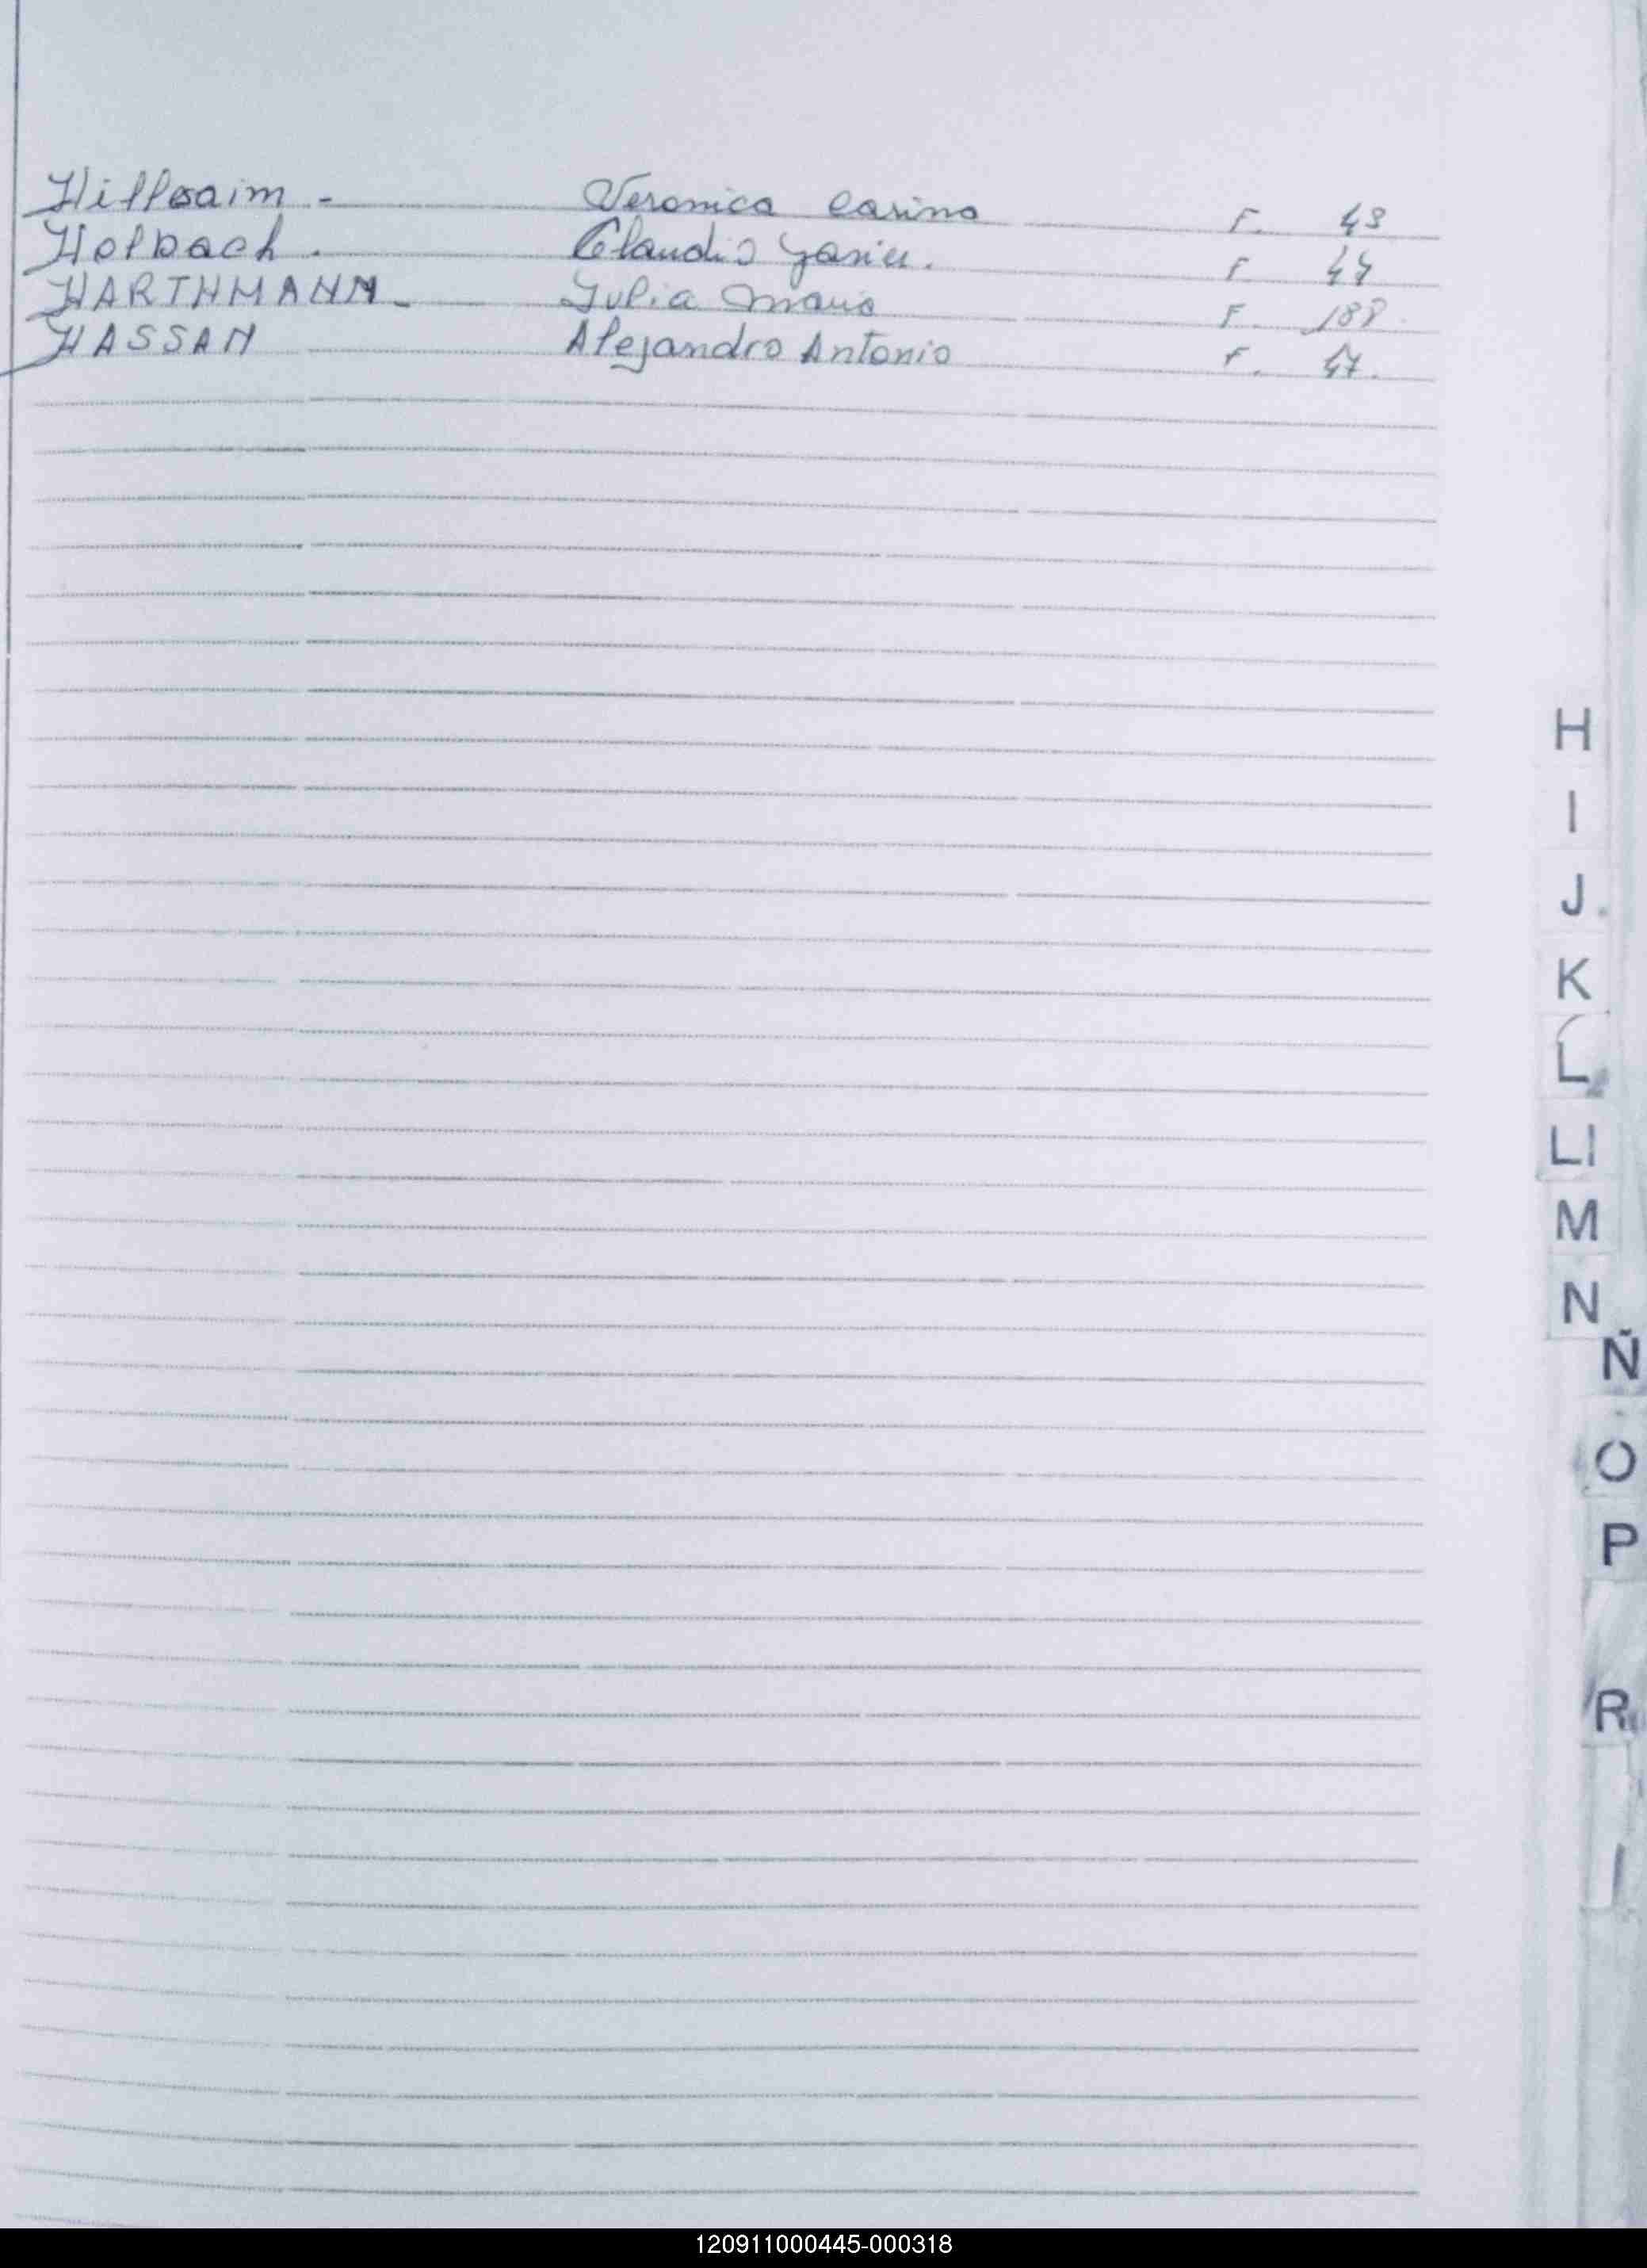 Hillesaim - Veronica Carina F. 43
Holbach. Claudio Javier. F 44
HARTHMANN - Julia Maria F. 188
HASSAN Alejandro Antonio F. 47.
H
I
J
K
L
Ll
M
N
Ñ
O
P
R
120911000445-000318